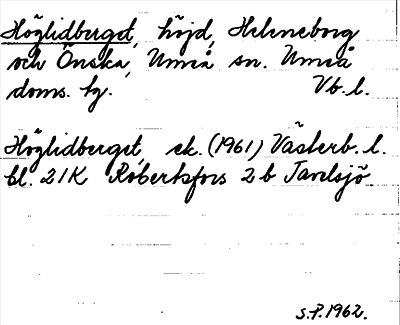 Höglidberget, höjd, Heleneborg
och Önska, Umeå sn. Umeå
doms. hg. Vb. l.
Höglidberget, ek. (1961) Västerb. l.
bl. 21K Robertsfors 2 b Tavelsjö.
S.P. 1962.